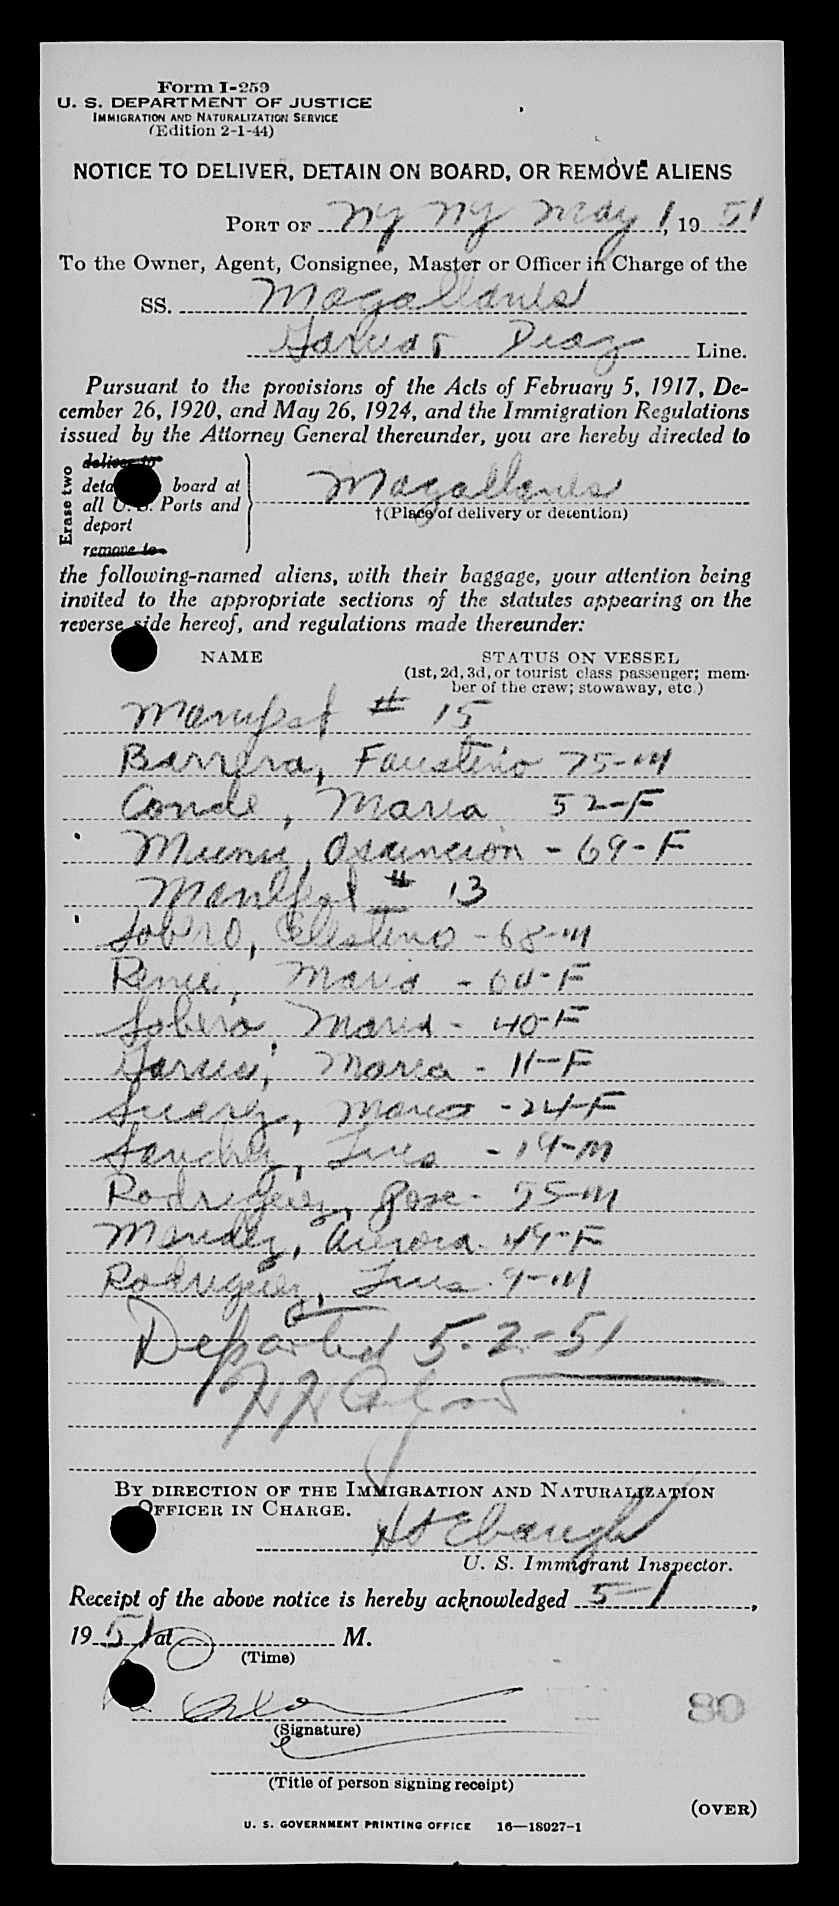 Form I-259
U. S. DEPARTMENT OF JUSTICE
IMMIGRATION AND NATURALIZATION SERVICE
(Edition 2-1-44)
NOTICE TO DELIVER, DETAIN ON BOARD, OR REMOVE ALIENS
PORT OF NY NY May 1, 19 51
To the Owner, Agent, Consignee, Master or Officer in Charge of the
SS. Magallanes
Garcia & Diaz Line.
Pursuant to the provisions of the Acts of February 5, 1917, De-
cember 26, 1920, and May 26, 1924, and the Immigration Regulations
issued by the Attorney General thereunder, you are hereby directed to
Erase two
deliver to
board at
all U. S. Ports and
deport
remove to
Magallanes
†(Place of delivery or detention)
the following-named aliens, with their baggage, your attention being
invited to the appropriate sections of the statutes appearing on the
reverse side hereof, and regulations made thereunder:
NAME STATUS ON VESSEL
(1st, 2d, 3d, or tourist class passenger; mem-
ber of the crew; stowaway, etc.)
Manifest # 15
Barrera, Faustino 75-M
Conde, Maria 52-F
- 69-F
Manifest # 13
Sobero, Celestino - 68-M
Maria - 60-F
Sobero, Maria - 40-F
Garcia, Maria - 11-F
Suarez, Maria - 24-F
Sanchez, Luis - 19-M
Rodriguez, Jose - 55-M
Mendez, Aurora - 49-F
Rodriguez, Luis - 9-M
Departed 5-2-51
BY DIRECTION OF THE IMMIGRATION AND NATURALIZATION
OFFICER IN CHARGE.
Ebaugh
U. S. Immigrant Inspector.
Receipt of the above notice is hereby acknowledged 5-1,
19 51 at M.
(Time)
80
(Signature)
(Title of person signing receipt)
(OVER)
U. S. GOVERNMENT PRINTING OFFICE 16—18027-1